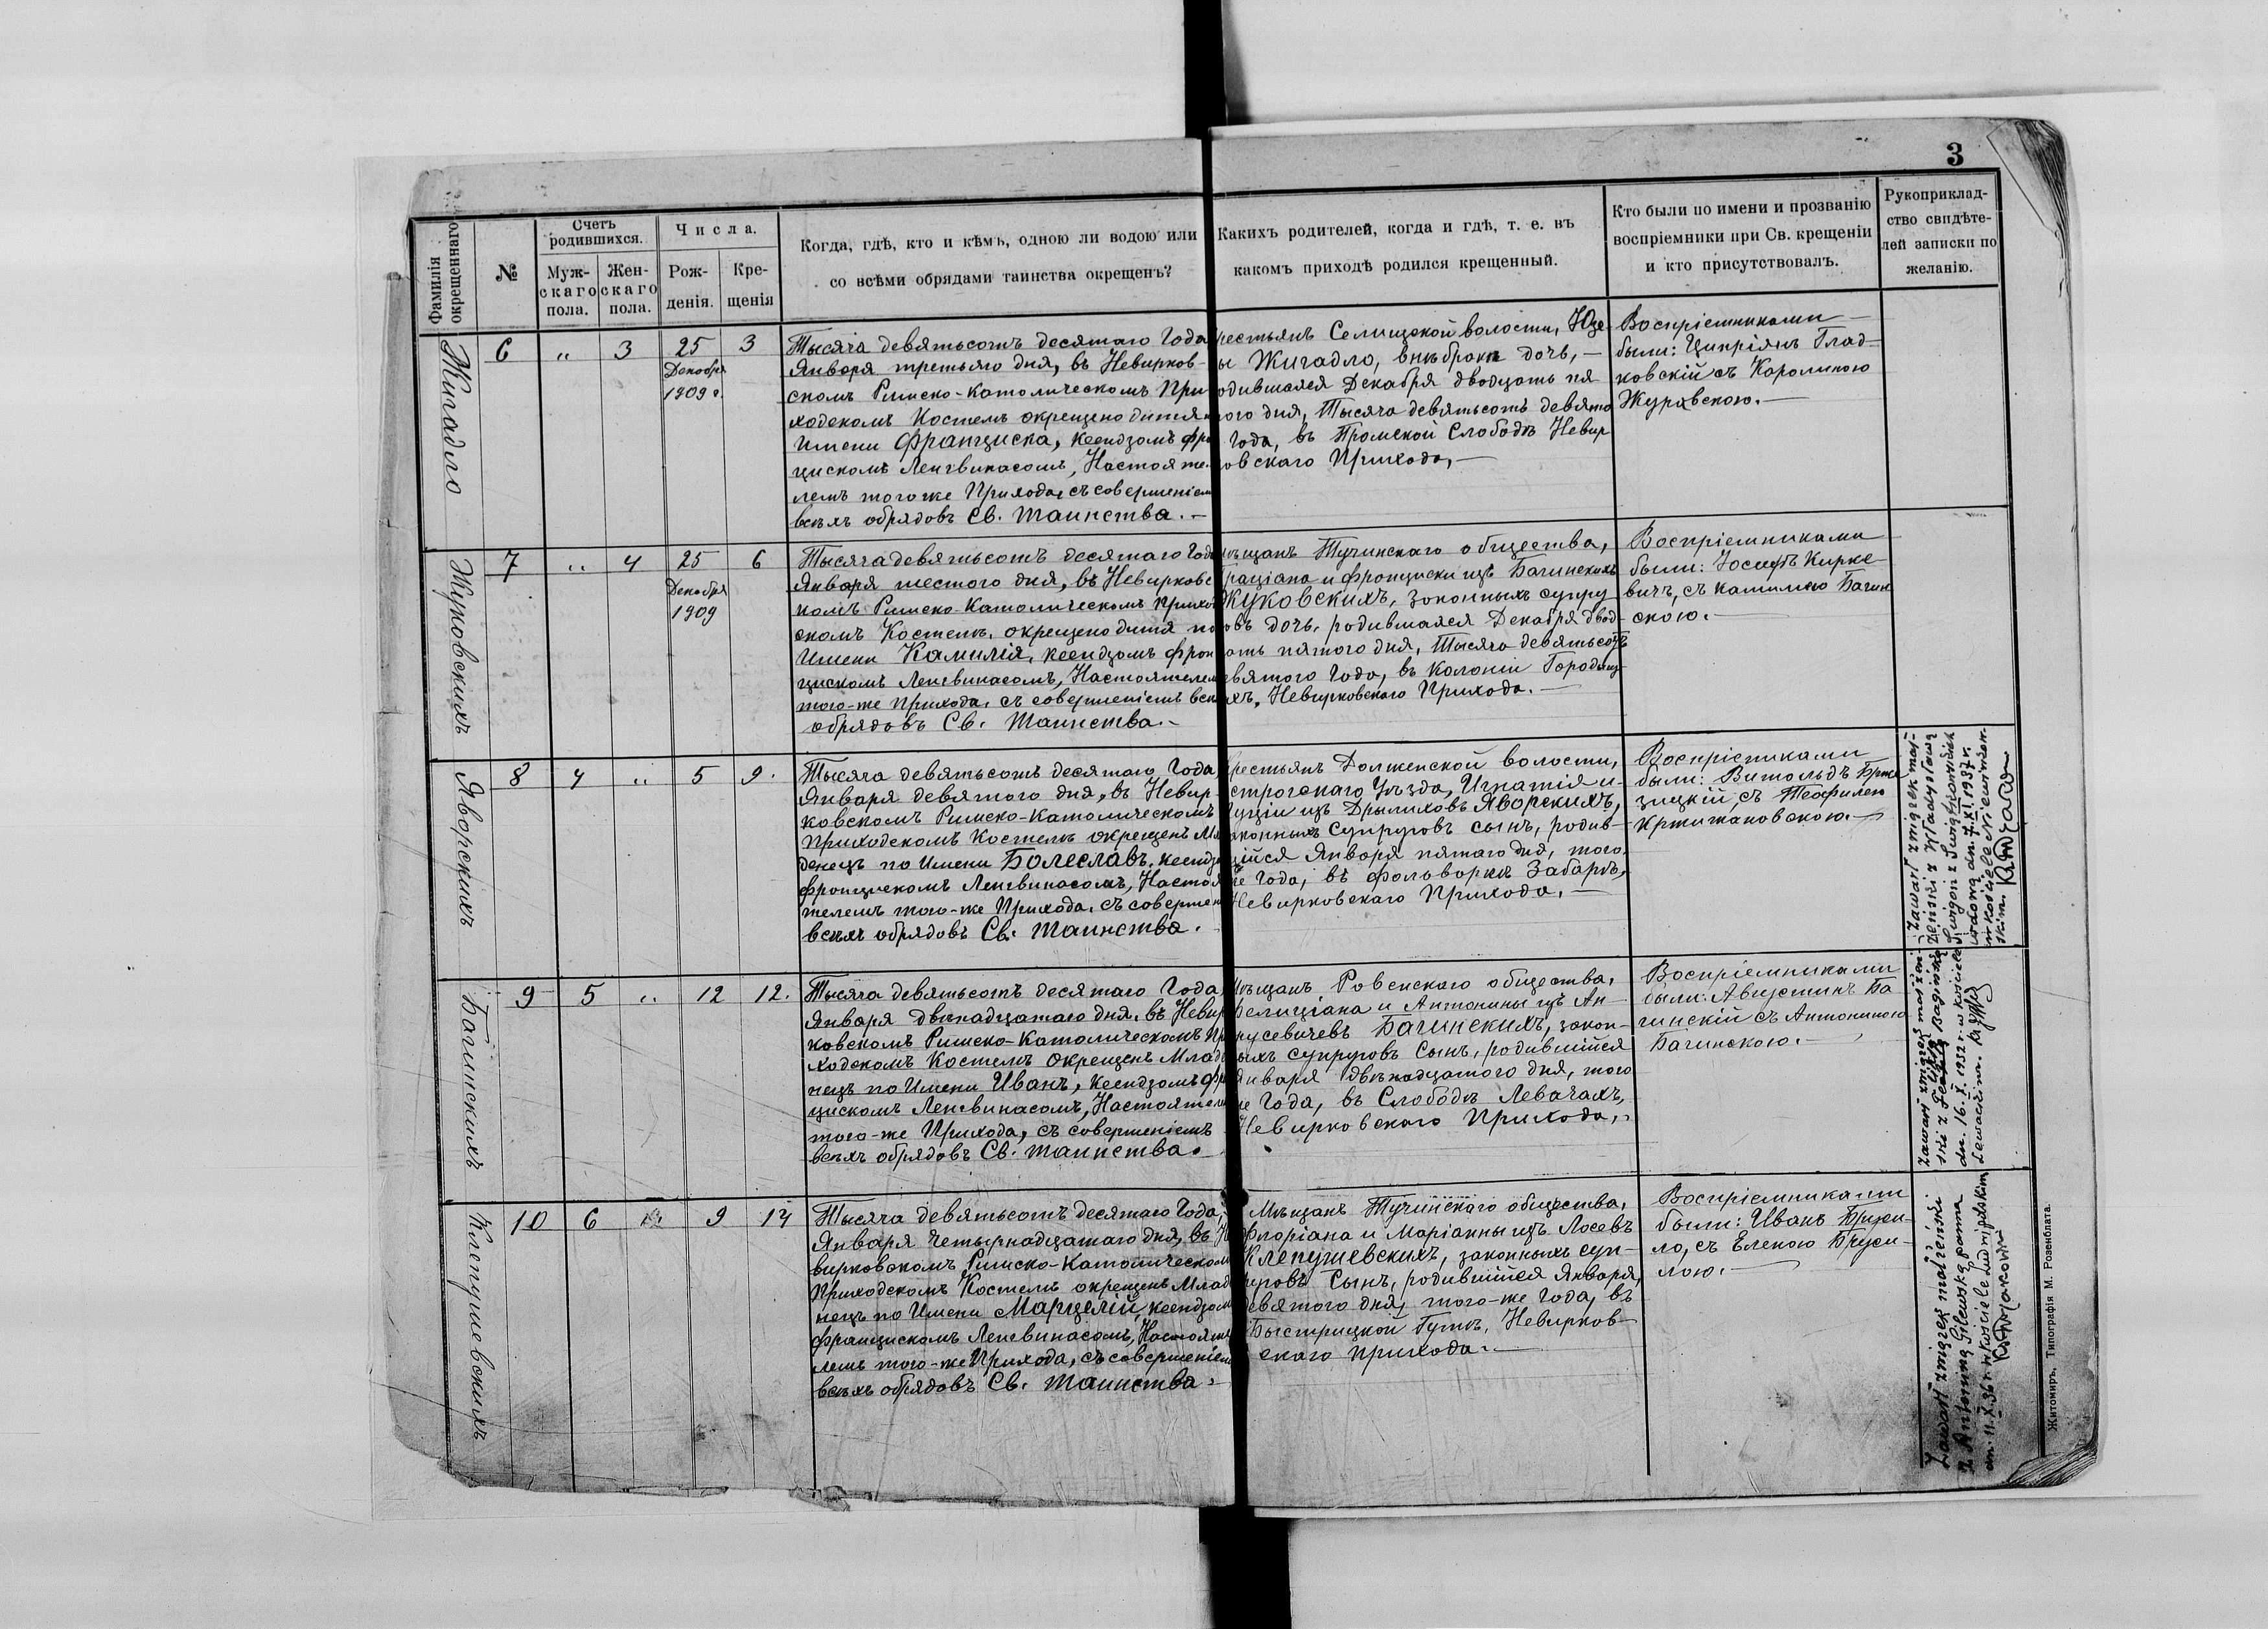 3
Фамилія окрещеннаго
№
Счетъ родившихся.
Мужскаго пола.
Женскаго пола.
Числа.
Рожденія.
Крещенія
Когда, гдѣ, кто и кѣмъ, одною ли водою или
со всѣми обрядами таинства окрещенъ?
Какихъ родителей, когда и гдѣ, т. е. въ
какомъ приходѣ родился крещенный.
Кто были по имени и прозванію
воспріемники при Св. крещеніи
и кто присутствовалъ.
Рукоприклад-
ство свидѣте-
лей записки по
желанію.
Жигадло
6 „ 3 25 3
Декабря
1909 г.
Тысяча девятьсотъ десятаго Года
Января третьяго дня, въ Невирков-
скомъ Римско-Католическомъ При
ходскомъ Костелѣ окрещено дитя
Имени Франциска, Ксендзомъ Фра
цискомъ Ленгвинасомъ, Настояте-
лемъ того же Прихода, съ совершеніем
всѣхъ обрядовъ Св. Таинства.—
рестьянъ Селищской волости, Юзе-
ы Жигадло, внѣбрачн дочь, —
одившаяся Декабря двадцать пя
того дня, Тысяча девятьсотъ девято
Года, въ Промской Слободѣ Невир
овскаго Прихода, —
Воспріемниками
были: Ципріянъ Глад-
ковскій съ Каролиною
Журавскою.—
Жуковскихъ
7 „ 4 25 6
Декабря
1909
Тысяча девятьсотъ десятаго Года
Января шестого дня, въ Невирковс
комъ Римско-Католическомъ Прихо
скомъ Костелѣ, окрещено дитя по
Имени Камилія, Ксендзомъ Фран
цискомъ Ленгвинасомъ, Настоятелем
того-же Прихода, съ совершеніемъ всѣ
обрядовъ Св. Таинства.—
ѣщанъ Тучинскаго общества,
раціана и Франциски изъ Багинскихъ
Жуковскихъ, законныхъ супру
овъ дочь, родившаяся Декабря двад-
ать пятого дня, Тысяча девятьсотъ
евятого Года, въ Колоніи Городищ-
хъ, Невирковскаго Прихода.—
Воспріемниками
были: Іосифъ Кирке-
вичъ, съ Камилею Багин
скою.—
Яворскихъ
8 4 „ 5 9.
Тысяча девятьсотъ десятаго Года
Января девятого дня, въ Невир-
ковскомъ Римско-Католическомъ
Приходскомъ Костелѣ окрещенъ Мла
денецъ по Имени Болеславъ, Ксендзо
Францискомъ Ленгвинасомъ, Настоя
телемъ того-же Прихода, съ совершен
всѣхъ обрядовъ Св. Таинства.
рестьянъ Долженской волости,
строгскаго Уѣзда, Игнатія и-
Луціи изъ Дрылиховъ Яворскихъ,
аконныхъ Супруговъ сынъ, родив-
шійся Января пятаго дня, того
же Года, въ фольваркѣ Забарѣ,
Невирковскаго Прихода.—
Воспріемниками
были: Витольдъ Брже
зицкій, съ Теофилею
Кржижановскою.—
Zawarł związek mał-
żeński z Władysławą
wdową dn. 7.XI.1937 r.
w kościele Niewirkow-
skim.
Багинскихъ
9 5 „ 12 12.
Тысяча девятьсотъ десятаго Года
Января двѣнадцатаго дня, въ Невир
ковскомъ Римско-Католическомъ Пр
ходскомъ Костелѣ окрещенъ Младе
нецъ по Имени Иванъ, Ксендзомъ Фра
цискомъ Ленгвинасомъ, Настоятеле
того-же Прихода, съ совершеніемъ
всѣхъ обрядовъ Св. Таинства.
ѣщанъ Ровенскаго общества,
Фелиціана и Антонины изъ Ан-
русевичевъ Багинскихъ, закон-
ыхъ супруговъ Сынъ, родившійся
Января двѣнадцатого дня, того
же Года, въ Слободѣ Левачахъ,
Невирковскаго Прихода,.
Воспріемниками
были: Августинъ Ба
гинскій съ Антониною
Багинскою.—
Zawarł związek małżeń-
ski z Bagińską
dn. 16.X.1932 r. w kościele
Lewaczina.
Клепушевскихъ
10 6 „ 9 14
Тысяча девятьсотъ десятаго Года,
Января Четырнадцатаго дня, въ Не
вирковскомъ Римско-Католическом
Приходскомъ Костелѣ окрещенъ Млад
нецъ по Имени Марцелій, Ксендзом
Францискомъ Ленгвинасомъ, Настояте
лемъ того-же Прихода, съ совершеніем
всѣхъ обрядовъ Св. Таинства.
Мѣщанъ Тучинскаго общества,
Флоріана и Маріанны изъ Лосевъ
Клепушевскихъ, законныхъ суп-
руговъ Сынъ, родившійся Января,
девятого дня, того-же Года, въ
Быстрицкой Гутѣ, Невирков-
скаго Прихода.—
Воспріемниками
были: Иванъ Бруси-
ло, съ Еленою Бруси-
лою.—
Zawarł związek małżeński
z Antoniną Gilewską panną
dn. 11.X.36 r. w kościele Ludwipolskim
Житомиръ, Типографія М. Розенблата.